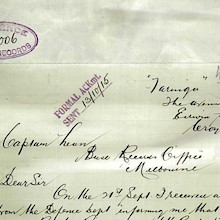 006
RECORDS
FORMAL ACKgt.
SENT 13/10/15
"Taringa"
The Avenue
Captain Lean
Base Records Office
Melbourne
Dear Sir
On the 21st Sept I received a
from the Defence Dept informing me that